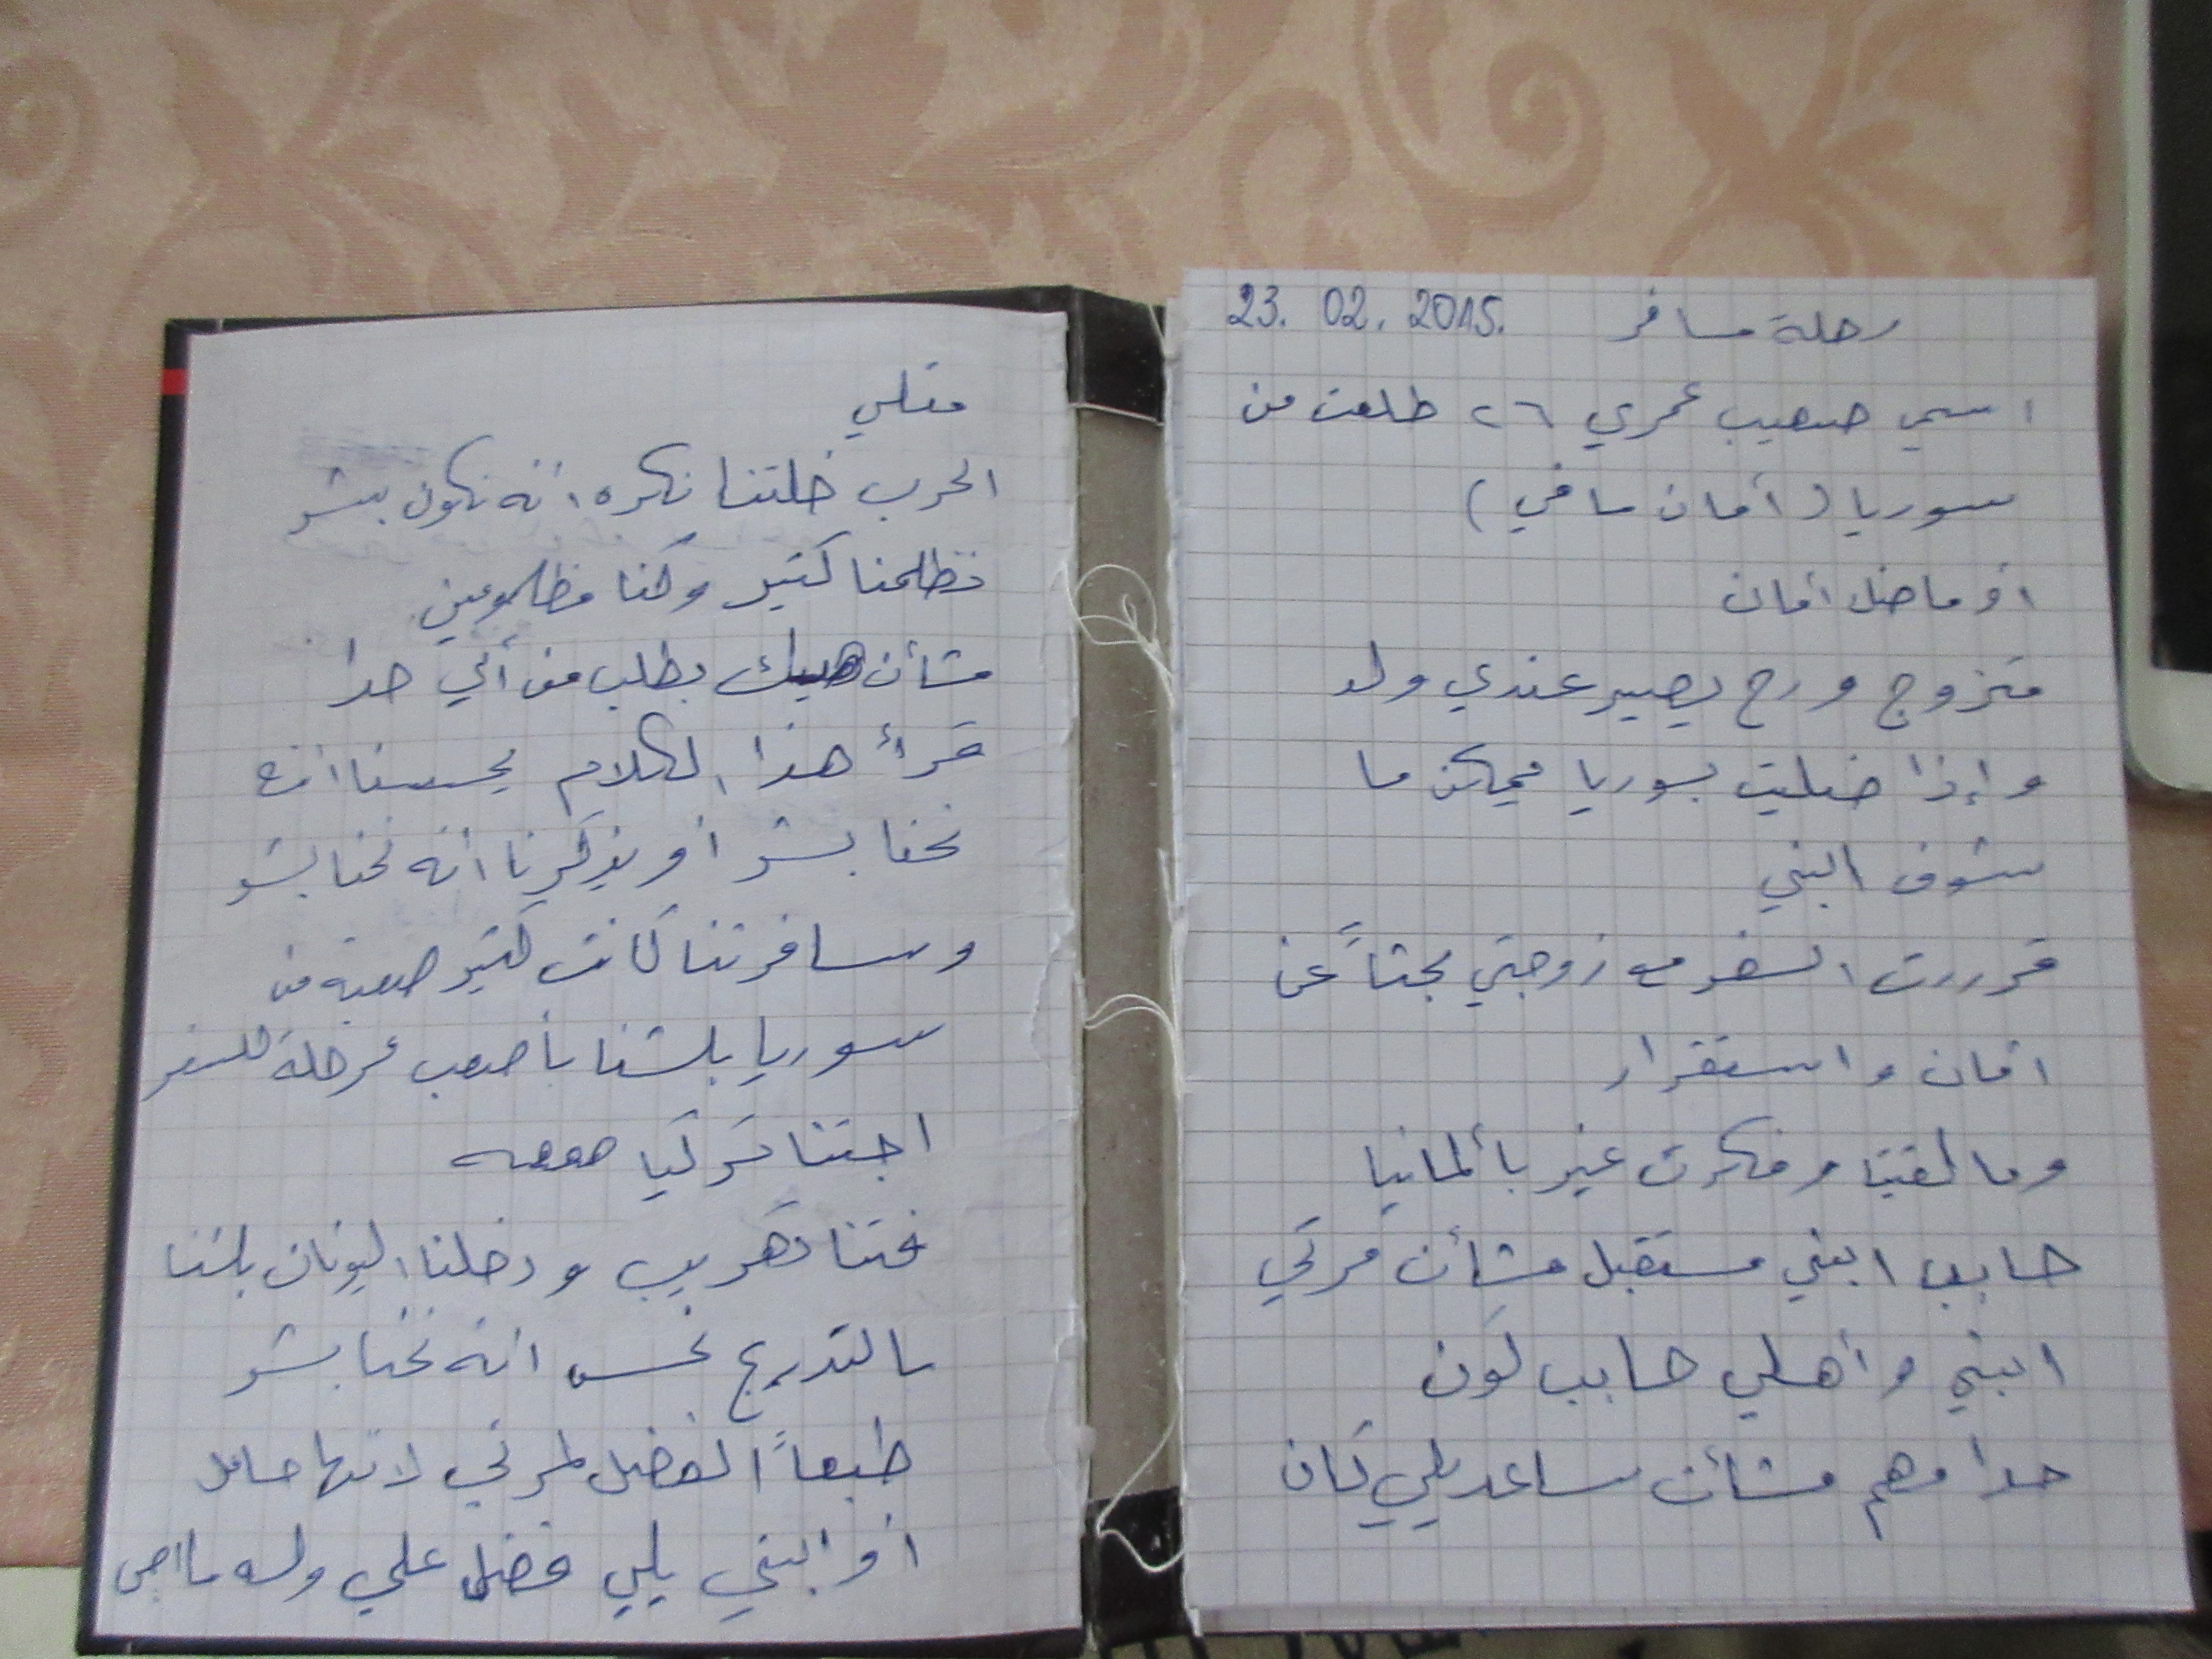 رحلة مسافر 23. 02. 2015.
اسمي صهيب عمري ٢٦ طلعت من
سوريا (أمان مافي)
او ماضل أمان
متزوج ورح يصير عندي ولد
وإذا ضليت بسوريا يمكن ما
شوف ابني
قررت السفر مع زوجتي بحثاً عن
امان واستقرار
وما لقينا وفكرت غير بألمانيا
حابب ابني مستقبل مشأن مرتي
ابني وأهلي حابب كون
حدا مهم مشأن ساعد يلي كان
متلي
الحرب خلتنا نكره انه نكون بشر
نظلمنا كتير وكنا مظلومين
مشأن هيك بطلب من أي حدا
قرأ هذا الكلام يحسسنا انه
نحنا بشر أو يذكرنا انه نحنا بشر
وسافرتنا كانت كتير صعبة من
سوريا بلشنا بأصعب مرحلة للسفر
اجتنا تركيا
فتنا تهريب ودخلنا اليونان بلشنا
بالتدريج نحس انه نحنا بشر
طبعاً الفضل لمرتي لانها حامل
أو ابني يلي فضل علي ولسه ما اجى